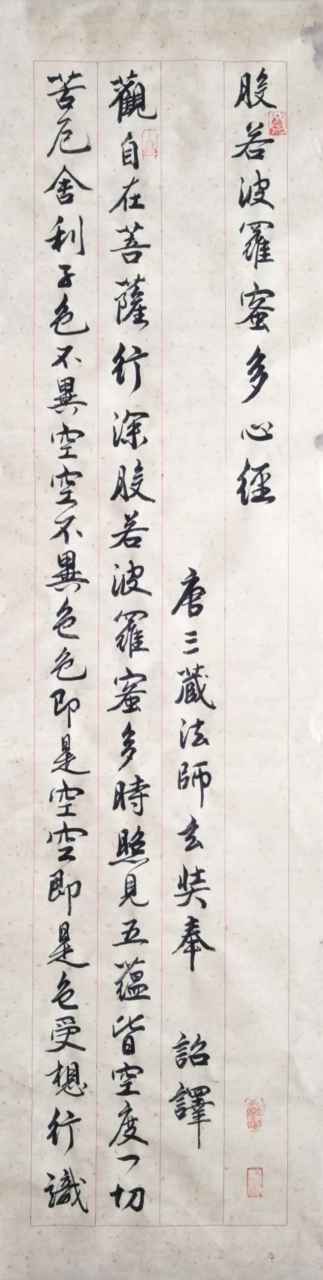 般若波羅蜜多心經
唐三藏法師玄奘奉 詔譯
觀自在菩薩行深般若波羅蜜多時照見五蘊皆空度一切
苦厄舍利子色不異空空不異色色即是空空即是色受想行識